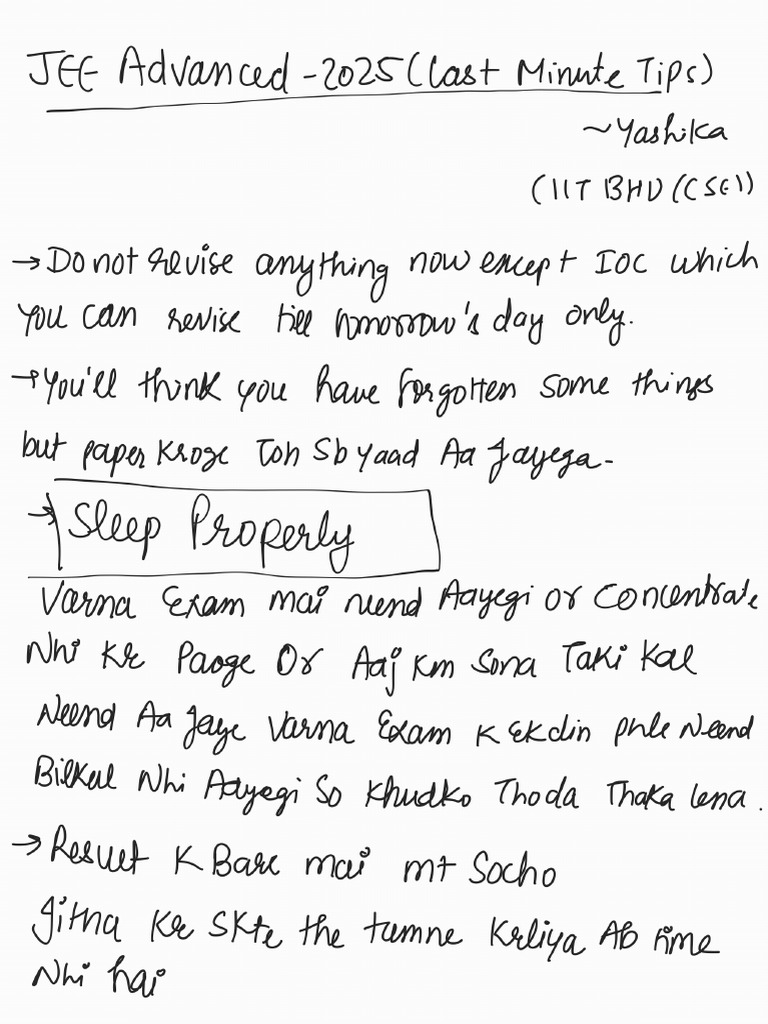 JEE Advanced -2025 (Last Minute Tips)
~Yashika
(IIT BHU (CSE))
→ Do not revise anything now except IOC which
you can revise till tomorrow's day only.
→ You'll think you have forgotten some things
but paper Kroge Toh Sb yaad Aa Jayega-
→ Sleep Properly
Varna Exam mai neend Aayegi or Concentrate
Nhi Kr Paoge Or Aaj Km Sona Taki Kal
Neend Aa Jaye Varna Exam K Ek din phle Neend
Bilkul Nhi Aayegi So Khudko Thoda Thaka lena.
→ Result K Bare mai mt Socho
Jitna Kr Skte the tumne Krliya Ab time
Nhi hai